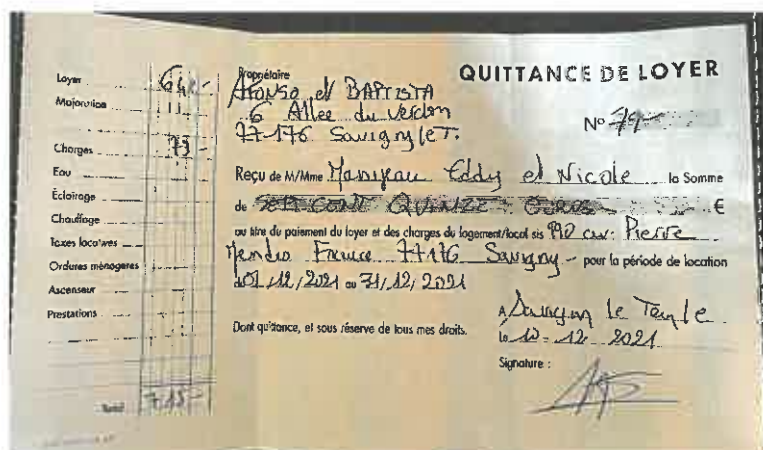 QUITTANCE DE LOYER
Loyer 642-
Majoration
Charges 73-
Eau
Éclairage
Chauffage
Taxes locatives
Ordures ménagères
Ascenseur
Prestations
Total 715-
Propriétaire
AFONSO et BAPTISTA
6 Allée du Verdon
77176 Savigny le T.
Nº 79
Reçu de M/Mme Eddy et Nicole la Somme
de SEPT CENT QUINZE EUROS €
au titre du paiement du loyer et des charges du logement/local sis Pierre
Mendès France 77176 Savigny - pour la période de location
du 01/12/2021 au 31/12/2021
Dont quittance, et sous réserve de tous mes droits.
A Savigny le Temple
le 10-12-2021
Signature :